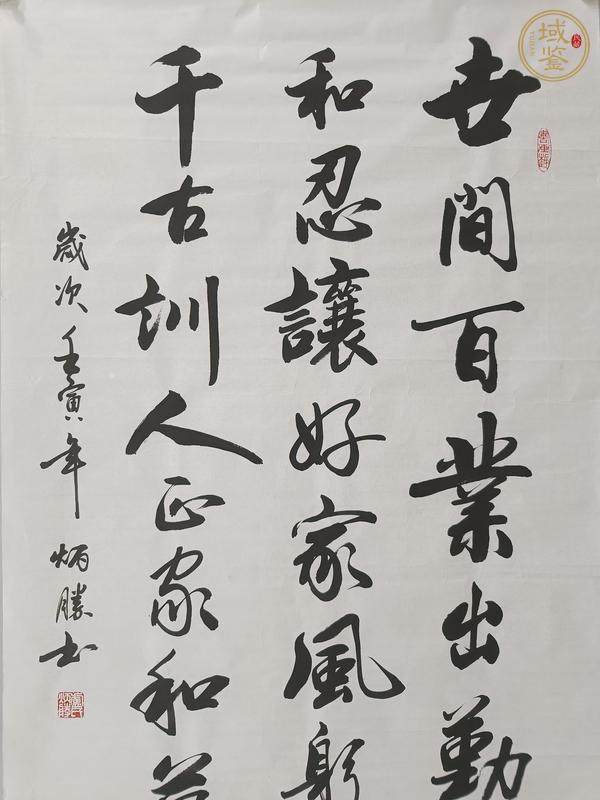 世間百業出勤
和忍讓好家風躬
千古訓人正家和
歲次壬寅年炳勝书
域鉴
YUJIAN